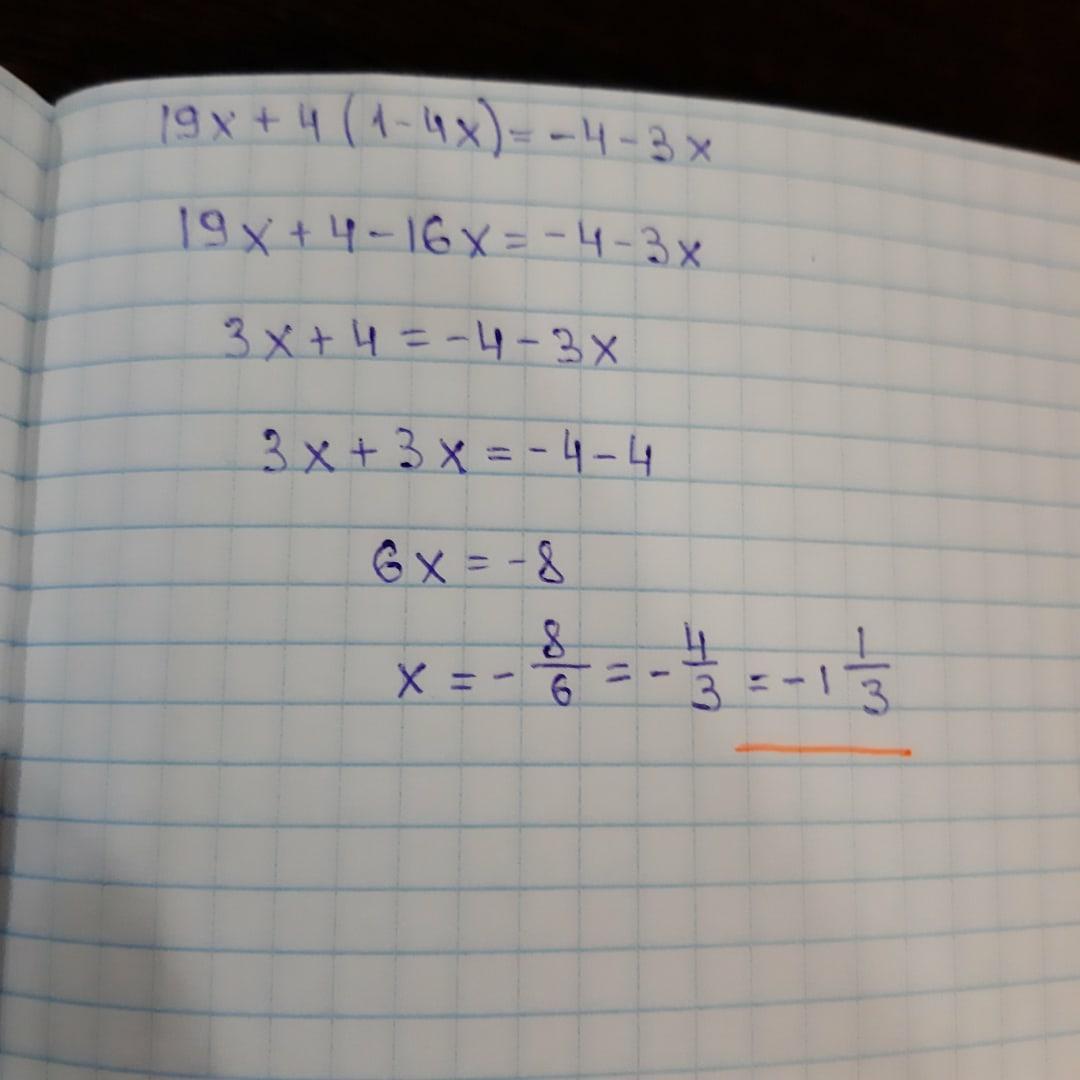 19x + 4 (1 - 4x) = -4 - 3x
19x + 4 - 16x = -4 - 3x
3x + 4 = -4 - 3x
3x + 3x = -4 - 4
6x = -8
x = - 8/6 = - 4/3 = -1 1/3